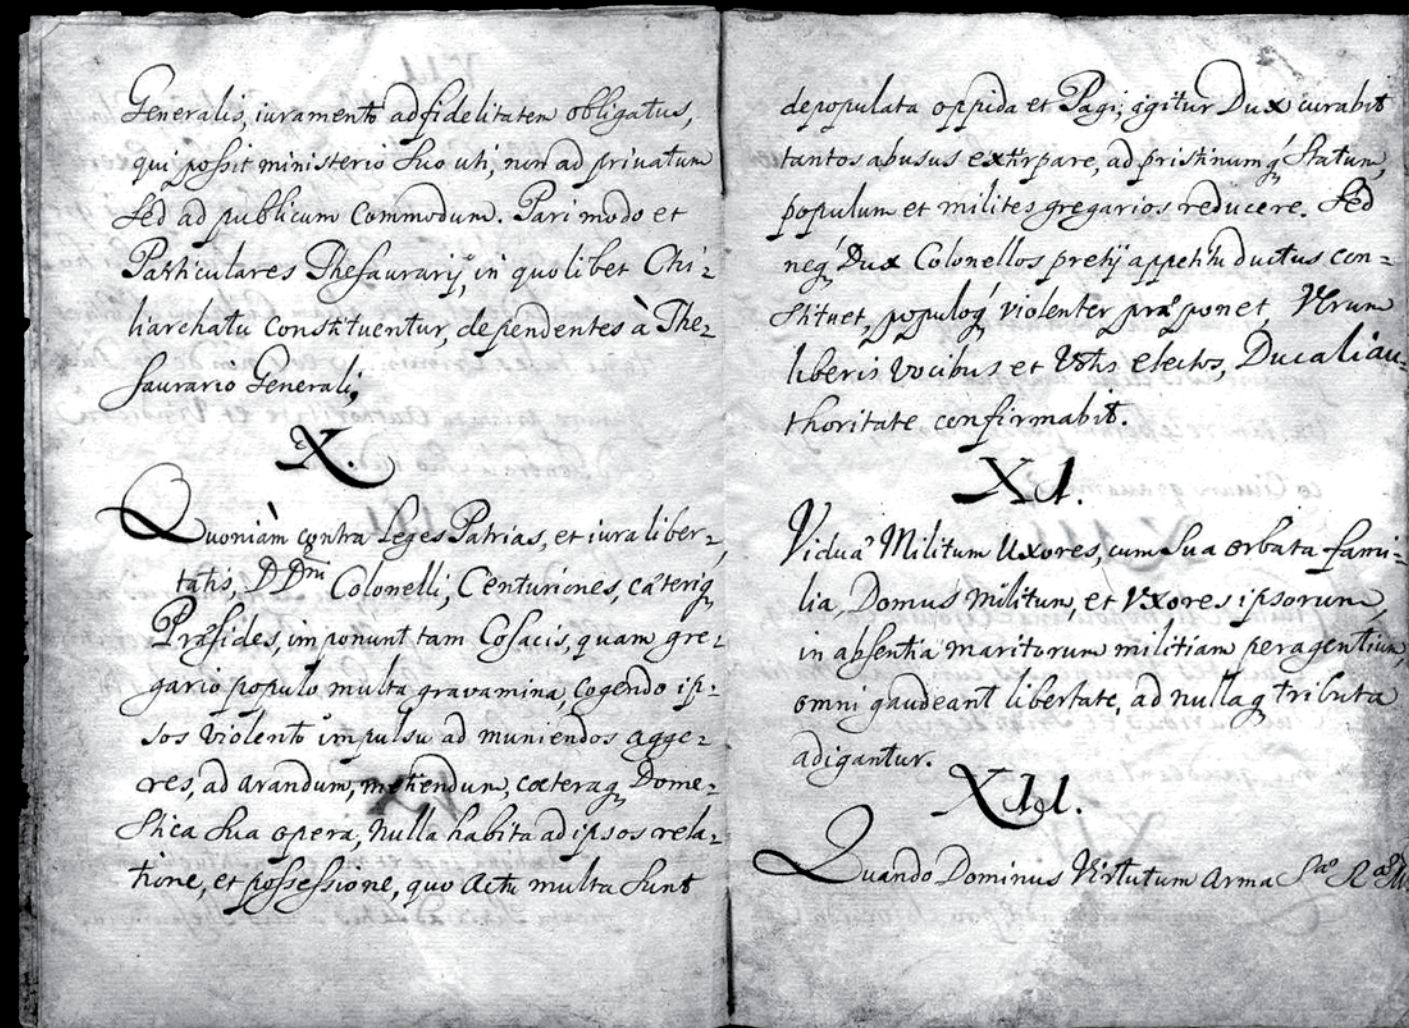 Generalis, iuramento ad fidelitatem obligatus,
qui possit ministerio suo uti, non ad privatum
sed ad publicum commodum. Pari modo et
Particulares Thesaurarij, in quolibet Chi-
liarchatu constituentur, dependentes à The-
saurario Generali,
X.
Quoniàm contra Leges Patrias, et iura liber-
tatis, DDni Colonelli, Centuriones, cæteriq
Præsides, imponunt tam Cosacis, quam gre-
gario populo multa gravamina, cogendo ip-
sos violento impulsu ad muniendos agge-
res, ad arandum, metiendum, cæteraq Dome-
stica sua opera, nulla habita ad ipsos rela-
tione, et possessione, quo actu multa sunt
depopulata oppida et Pagi; igitur Dux curabit
tantos abusus extirpare, ad pristinumq́ statum,
populum et milites gregarios reducere. Sed
neq́ Dux Colonellos pretij appetitu ductus con-
stituet, populoq́ violenter præponet, Verum
liberis vocibus et Votis electos, Ducali au-
thoritate confirmabit.
XI.
Viduæ Militum Uxores, cum sua orbata fami-
lia, Domus militum, et Vxores ipsorum,
in absentia maritorum militiam peragentium,
omni gaudeant libertate, ad nullaq tributa
adigantur.
XII.
Quando Dominus Virtutum arma